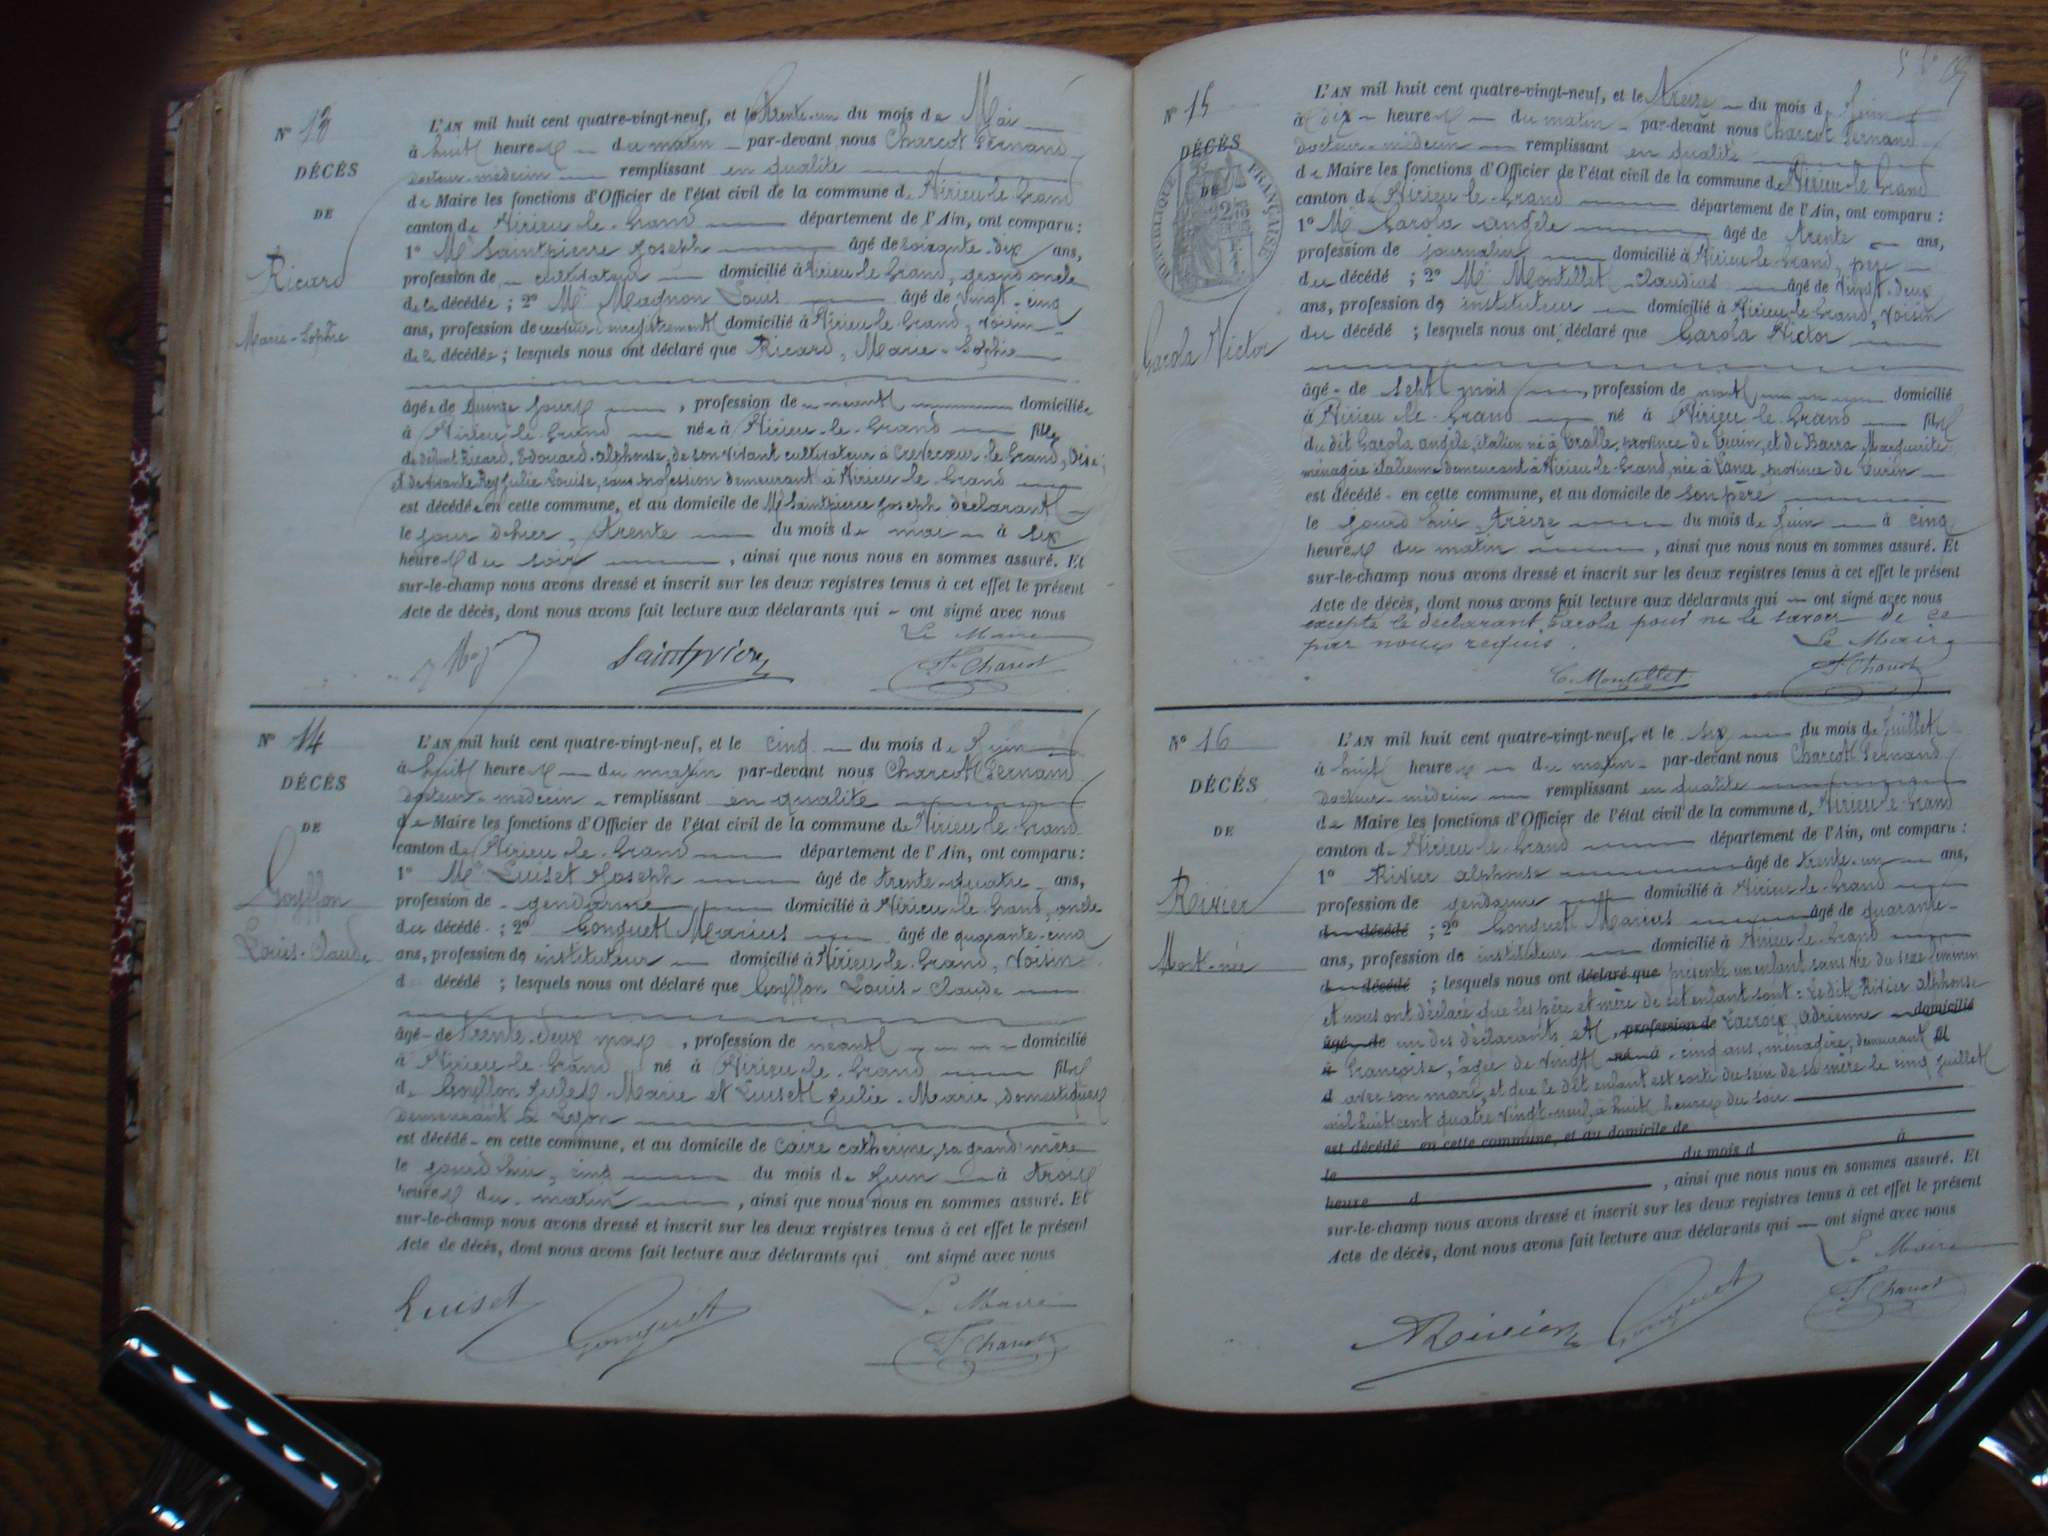 N° 13
DÉCÈS
DE
Ricard
Marie-Sophie
L'AN mil huit cent quatre-vingt-neuf, et le trente-un du mois de Mai
à huit heures du matin par-devant nous Charcot Fernand
docteur-médecin remplissant en qualité
de Maire les fonctions d'Officier de l'état civil de la commune de Virieu-le-Grand
canton de Virieu-le-Grand département de l'Ain, ont comparu :
1° Mr Saintpierre Joseph âgé de soixante-dix ans,
profession de cultivateur domicilié à Virieu-le-Grand, grand oncle
de la décédée ; 2° Mr Magnon Louis âgé de vingt-cinq
ans, profession de receveur d'enregistrement domicilié à Virieu-le-Grand, voisin
de la décédée ; lesquels nous ont déclaré que Ricard, Marie-Sophie
âgée de quinze jours, profession de néant domiciliée
à Virieu-le-Grand née à Virieu-le-Grand fille
de défunt Ricard Edouard-alphonse, de son vivant cultivateur à Crèvecœur-le-Grand, Oise ;
et de vivante Rey Julie Louise, sans profession demeurant à Virieu-le-Grand
est décédée en cette commune, et au domicile de Mr Saintpierre Joseph déclarant
le jour d'hier, trente du mois de mai à six
heures du soir, ainsi que nous nous en sommes assuré. Et
sur-le-champ nous avons dressé et inscrit sur les deux registres tenus à cet effet le présent
Acte de décès, dont nous avons fait lecture aux déclarants qui ont signé avec nous
Le Maire
Saintpierre
F. Charcot
N° 14
DÉCÈS
DE
Goyffon
Louis-Claude
L'AN mil huit cent quatre-vingt-neuf, et le cinq du mois de Juin
à huit heures du matin par-devant nous Charcot Fernand
docteur-médecin remplissant en qualité
de Maire les fonctions d'Officier de l'état civil de la commune de Virieu-le-Grand
canton de Virieu-le-Grand département de l'Ain, ont comparu :
1° Mr Luiset Joseph âgé de trente-quatre ans,
profession de gendarme domicilié à Virieu-le-Grand, oncle
du décédé ; 2° Gonguet Marius âgé de quarante-cinq
ans, profession de instituteur domicilié à Virieu-le-Grand, voisin
d décédé ; lesquels nous ont déclaré que Goyffon Louis-Claude
âgé de trente-deux mois, profession de néant domicilié
à Virieu-le-Grand né à Virieu-le-Grand fils
de Goyffon Jules-Marie et Luiset Julie-Marie, domestiques
demeurant à Lyon
est décédé en cette commune, et au domicile de Caire catherine, sa grand'mère
le jourd'hui, cinq du mois de Juin à trois
heures du matin, ainsi que nous nous en sommes assuré. Et
sur-le-champ nous avons dressé et inscrit sur les deux registres tenus à cet effet le présent
Acte de décès, dont nous avons fait lecture aux déclarants qui ont signé avec nous
Luiset
Gonguet
Le Maire
F. Charcot
N° 15
DÉCÈS
DE
RÉPUBLIQUE FRANÇAISE
Garola Victor
L'AN mil huit cent quatre-vingt-neuf, et le treize du mois de Juin
à dix heures du matin par-devant nous Charcot Fernand
docteur-médecin remplissant en qualité
de Maire les fonctions d'Officier de l'état civil de la commune de Virieu-le-Grand
canton de Virieu-le-Grand département de l'Ain, ont comparu :
1° Mr Garola angèle âgé de trente ans,
profession de journalier domicilié à Virieu-le-Grand, père
du décédé ; 2° Mr Montillet Claudius âgé de vingt-deux
ans, profession de instituteur domicilié à Virieu-le-Grand, voisin
du décédé ; lesquels nous ont déclaré que Garola Victor
âgé de sept mois, profession de néant domicilié
à Virieu-le-Grand né à Virieu-le-Grand fils
du dit Garola angèle, italien né à Tralle, province de Turin, et de Barra Marguerite
ménagère italienne demeurant à Virieu-le-Grand, née à Lance, province de Turin
est décédé en cette commune, et au domicile de son père
le jourd'hui treize du mois de Juin à cinq
heures du matin, ainsi que nous nous en sommes assuré. Et
sur-le-champ nous avons dressé et inscrit sur les deux registres tenus à cet effet le présent
Acte de décès, dont nous avons fait lecture aux déclarants qui ont signé avec nous
excepté le déclarant Garola pour ne le savoir de ce
par nous requis.
Le Maire
C. Montillet
F. Charcot
N° 16
DÉCÈS
DE
Rivier
Mort-née
L'AN mil huit cent quatre-vingt-neuf, et le six du mois de Juillet
à huit heures du matin par-devant nous Charcot Fernand
docteur-médecin remplissant en qualité
de Maire les fonctions d'Officier de l'état civil de la commune d. Virieu-le-Grand
canton de Virieu-le-Grand département de l'Ain, ont comparu :
1° Rivier alphonse âgé de trente-un ans,
profession de gendarme domicilié à Virieu-le-Grand
du décédé ; 2° Gonguet Marius âgé de quarante-
ans, profession de instituteur domicilié à Virieu-le-Grand
du décédé ; lesquels nous ont déclaré que présenté un enfant sans vie du sexe féminin
et nous ont déclaré que les père et mère de cet enfant sont : le dit Rivier alphonse
âgé de un des déclarants et, profession de Lacroix, adrienne domicilié
à Françoise, âgée de vingt né à cinq ans, ménagère, demeurant fil
d avec son mari, et que le dit enfant est sorti du sein de sa mère le cinq juillet
mil huit cent quatre vingt-neuf, à huit heures du soir
est décédé en cette commune, et au domicile de
le du mois d à
heure d, ainsi que nous nous en sommes assuré. Et
sur-le-champ nous avons dressé et inscrit sur les deux registres tenus à cet effet le présent
Acte de décès, dont nous avons fait lecture aux déclarants qui ont signé avec nous
Le Maire
Rivier
Gonguet
F. Charcot